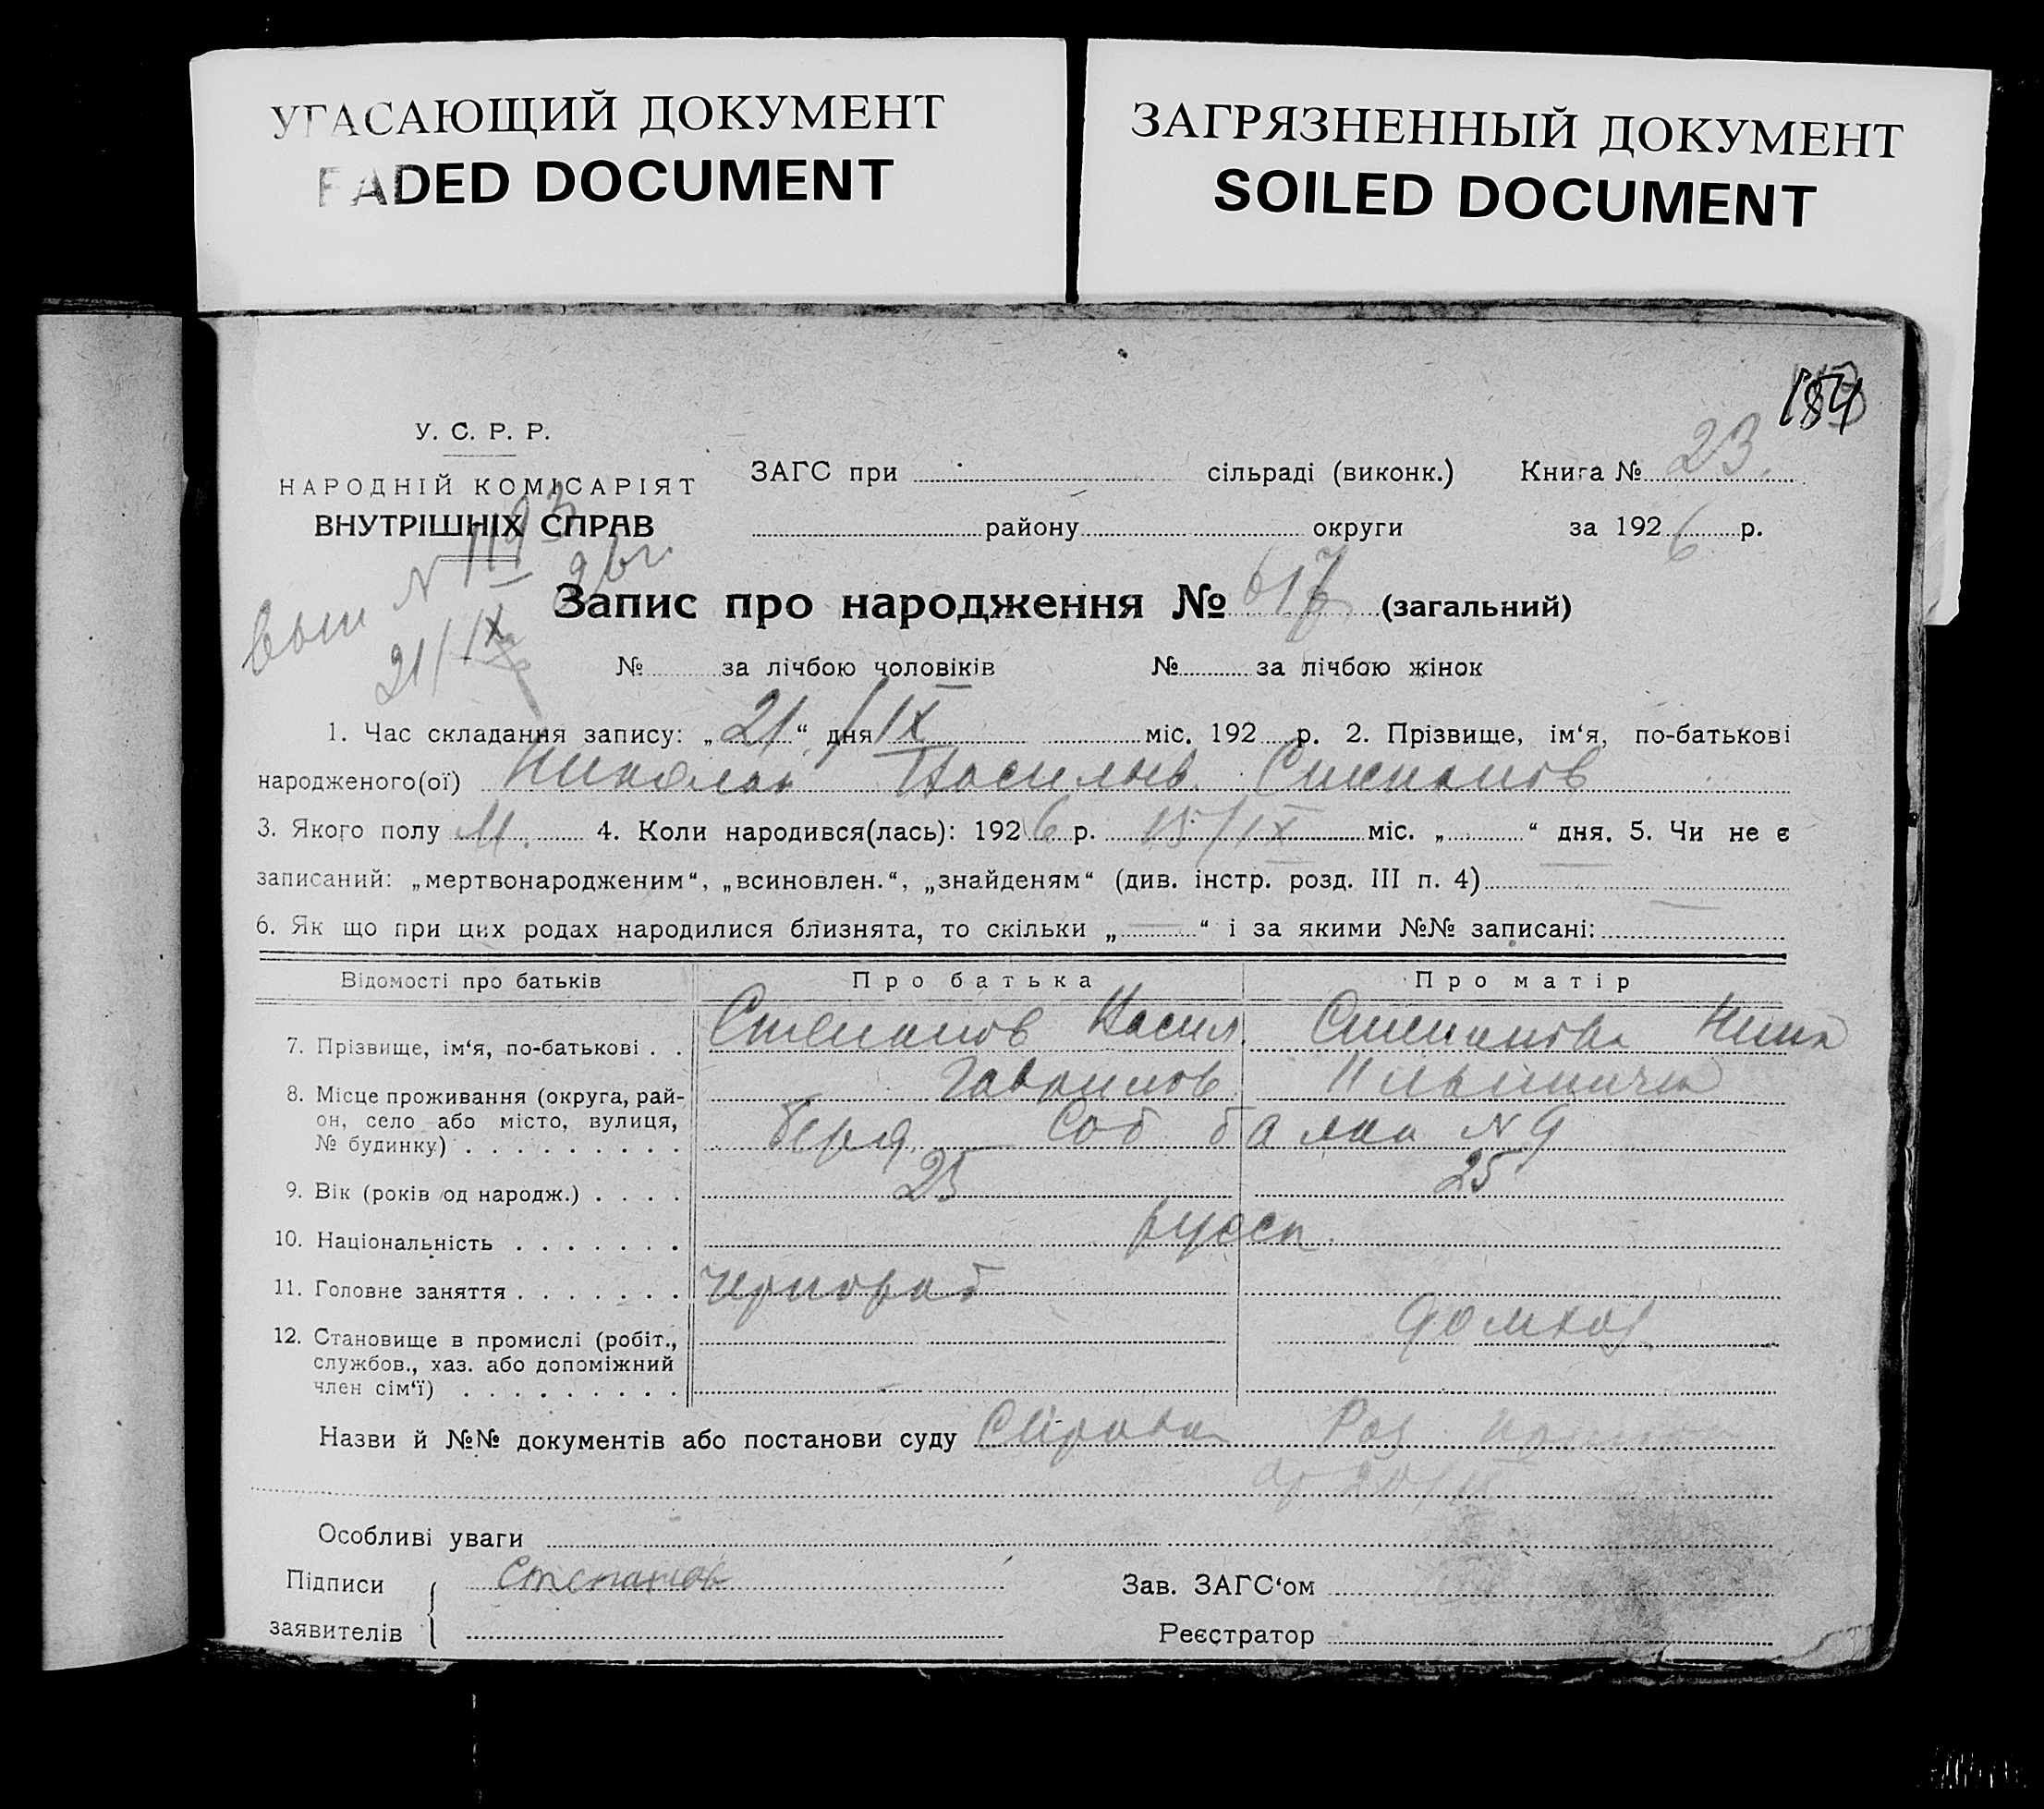 УГАСАЮЩИЙ ДОКУМЕНТ
FADED DOCUMENT
ЗАГРЯЗНЕННЫЙ ДОКУМЕНТ
SOILED DOCUMENT
184
У. С. Р. Р.
НАРОДНІЙ КОМІСАРІЯТ
ВНУТРІШНІХ СПРАВ
ЗАГС при сільраді (виконк.) Книга № 23.
району округи за 1926 р.
Запис про народження № 617 (загальний)
№ за лічбою чоловіків № за лічбою жінок
21/IX
1. Час складання запису: „21“ дня IX міс. 192 р. 2. Прізвище, ім‘я, по-батькові
народженого(ої) Николай Васильев. Степанов
3. Якого полу М. 4. Коли народився(лась): 1926 р. 15/IX міс. „ “ дня. 5. Чи не є
записаний: „мертвонародженим“, „всиновлен.“, „знайденям“ (див. інстр. розд. III п. 4)
6. Як що при цих родах народилися близнята, то скільки „—“ і за якими №№ записані:
Відомості про батьків Про батька Про матір
7. Прізвище, ім‘я, по-батькові . . Степанов Васил. Степанова Нина
Гаврилов. Ильинична
8. Місце проживання (округа, рай-
он, село або місто, вулиця,
№ будинку) . . . . . . . . . Соб балка N 9
9. Вік (років од народж.) . . . . 25 25
10. Національність . . . . . . . русск.
11. Головне заняття . . . . . . . чернораб
12. Становище в промислі (робіт.,
службов., хаз. або допоміжний
член сім‘ї) . . . . . . . . . домхоз.
Назви й №№ документів або постанови суду Справка
Особливі уваги
Підписи Степанов Зав. ЗАГС‘ом
заявителів Реєстратор